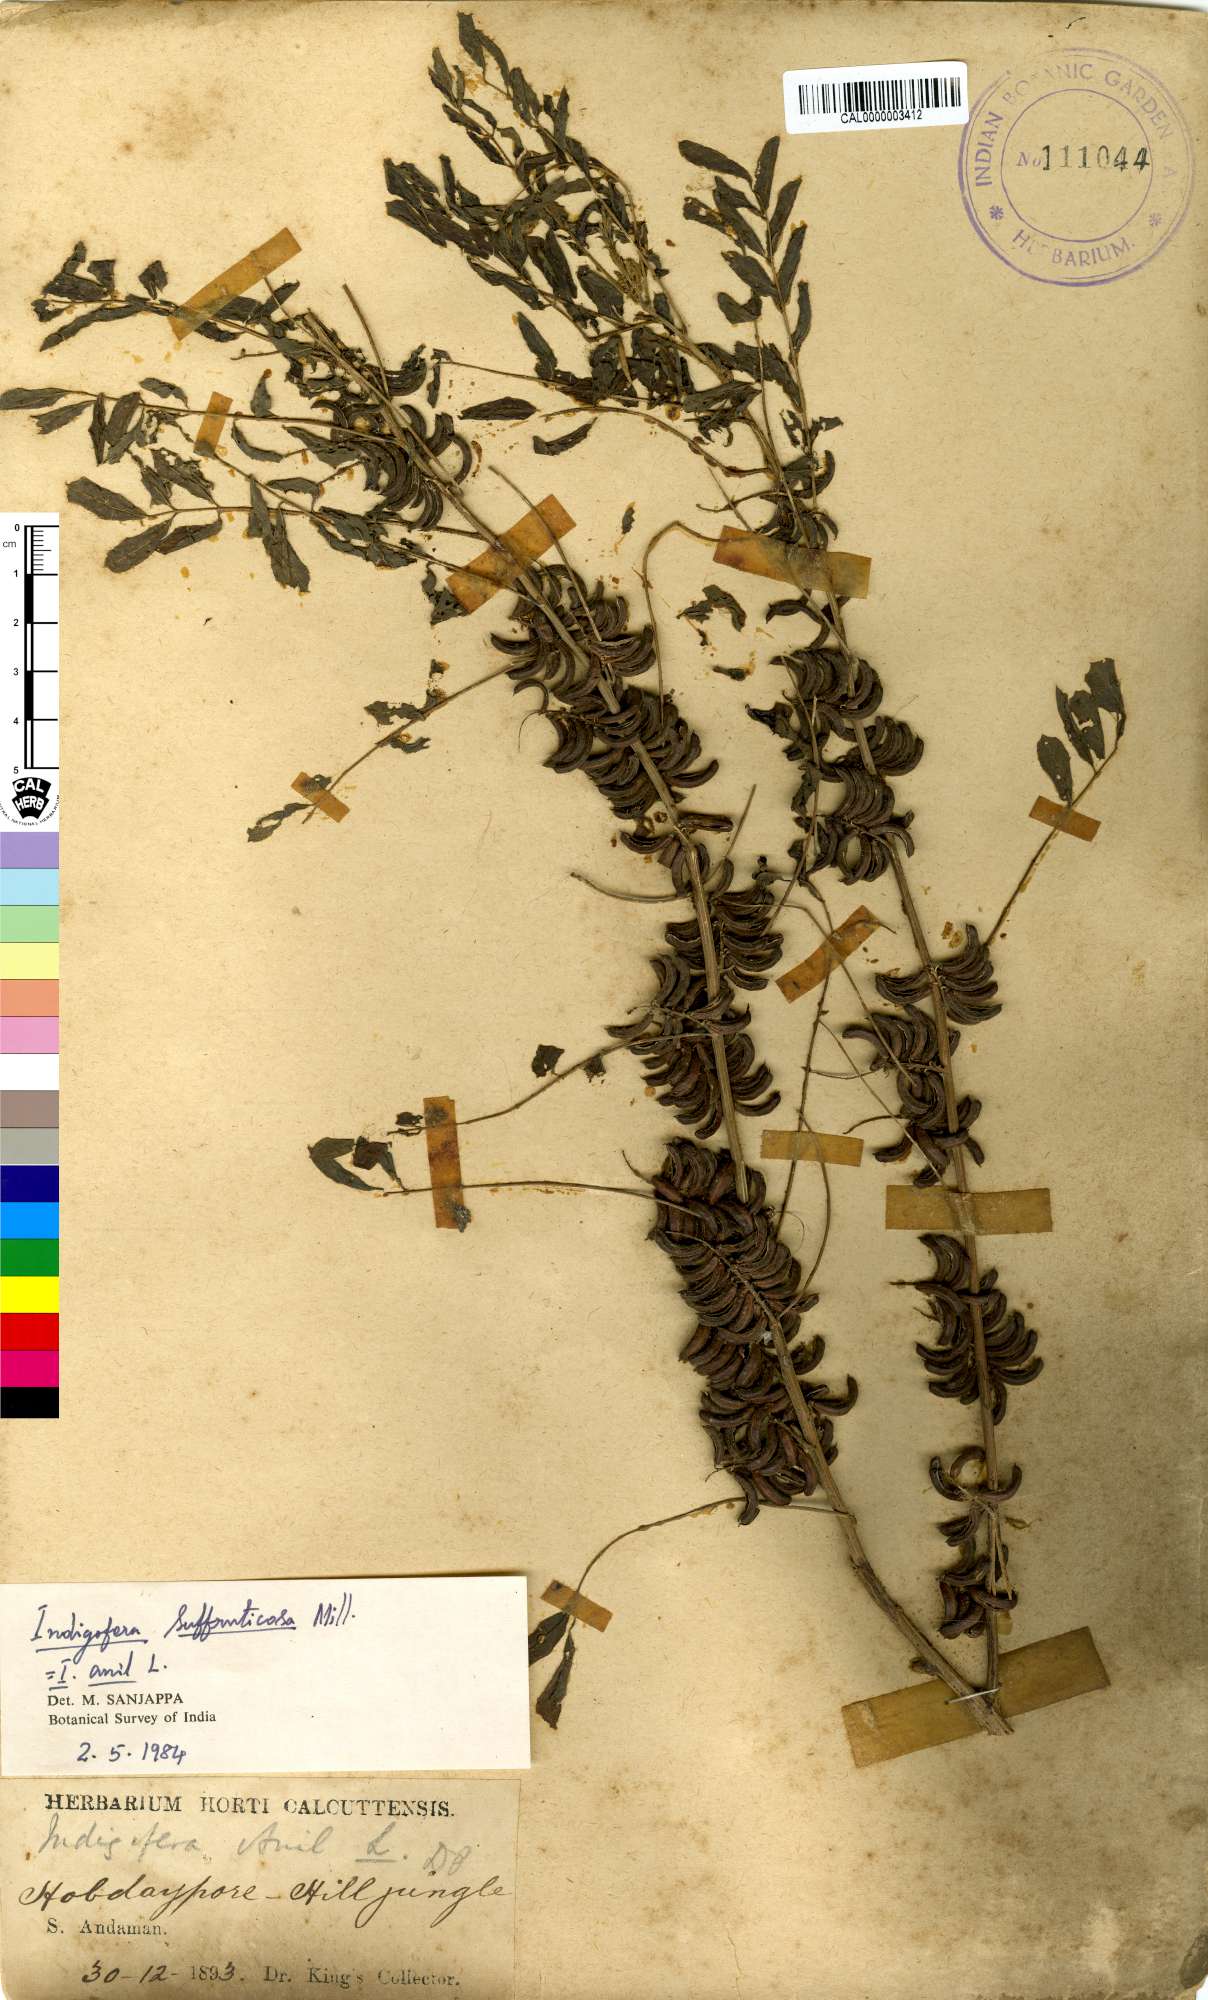 CAL0000003412
INDIAN BOTANIC GARDEN
No 111044
HERBARIUM.
0
cm
1
2
3
4
5
CAL
HERB
Indigofera suffruticosa Mill.
= I. anil L.
Det. M. SANJAPPA
Botanical Survey of India
2. 5. 1984
HERBARIUM HORTI CALCUTTENSIS.
Indigofera Anil L.
Hobdaypore - Hill jungle
S. Andaman.
30-12-1893. Dr. King's Collector.